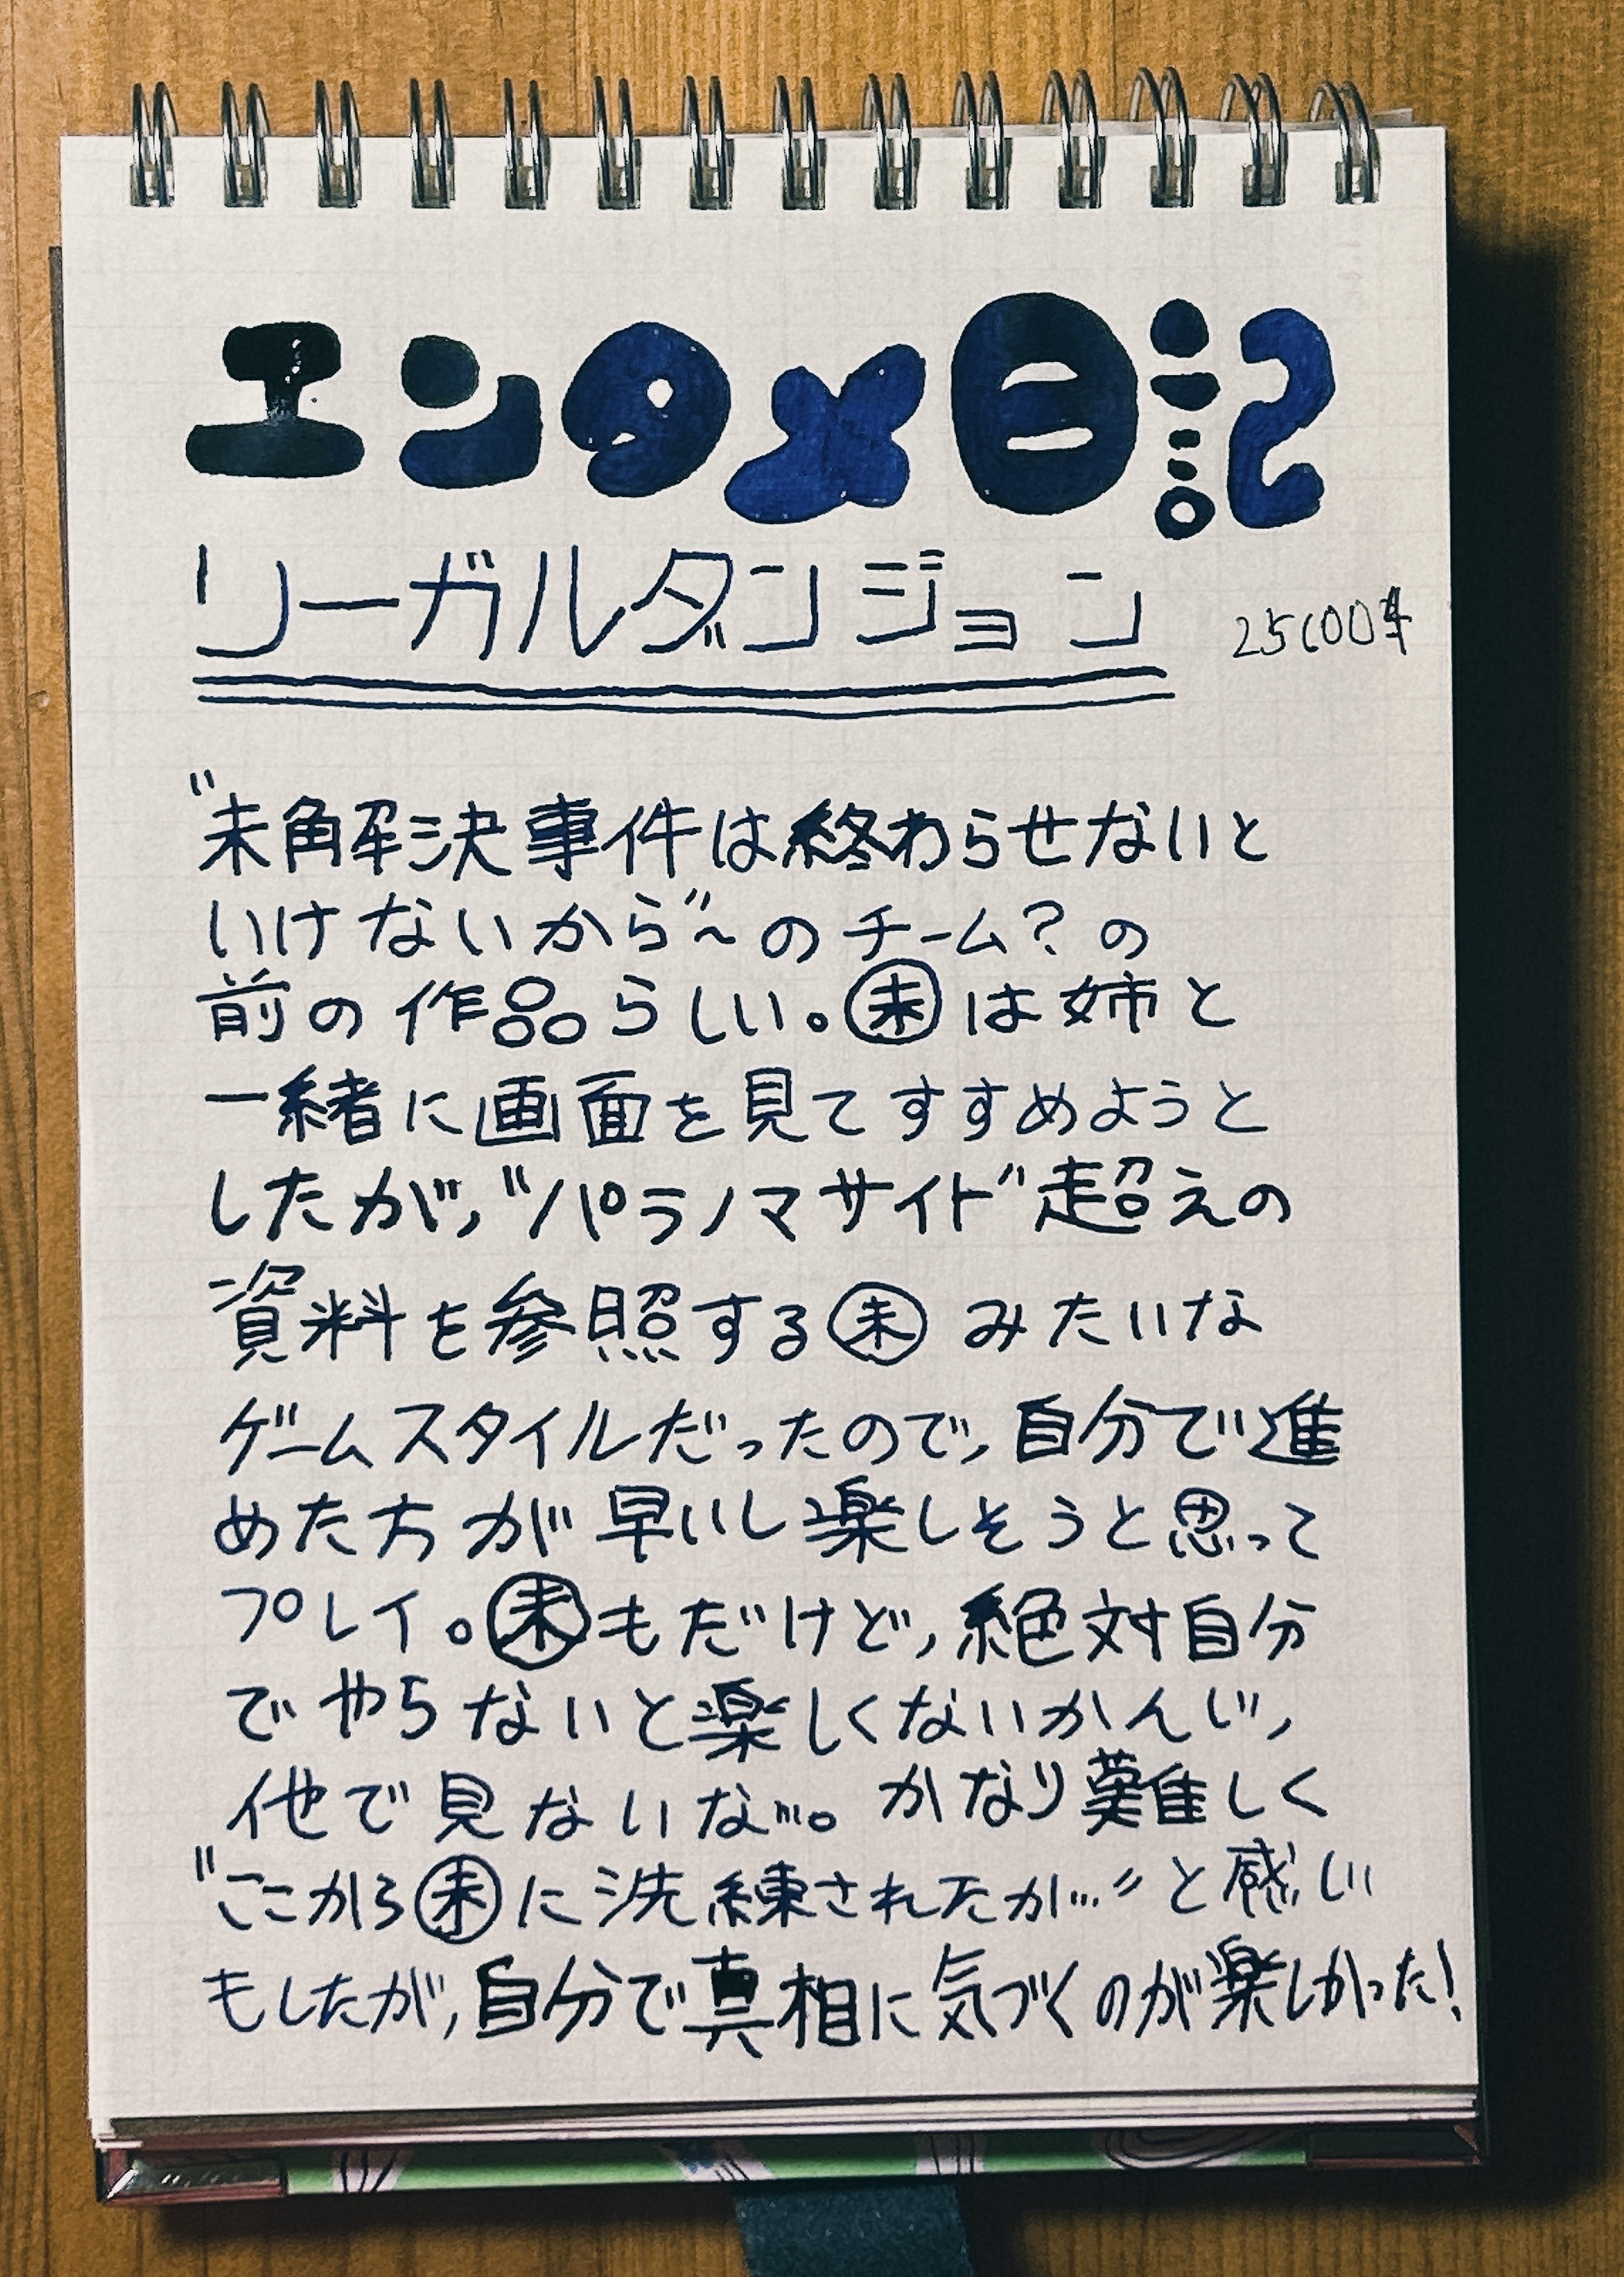 エンタメ日記
リーガルダンジョン
"未解決事件は終わらせないと
いけないから"〜のチーム?の
前の作品らしい。㊍は姉と
一緒に画面を見てすすめようと
したが、"パラノマサイト"超えの
資料を参照する みたいな
ゲームスタイルだったので、自分で進
めた方が早いし楽しそうと思って
プレイ。 もだけど、絶対自分
でやらないと楽しくないかんじ、
他で見ないな…。かなり難しく
"ここから に洗練されたか…"と感じ
もしたが、自分で真相に気づくのが楽しかった!